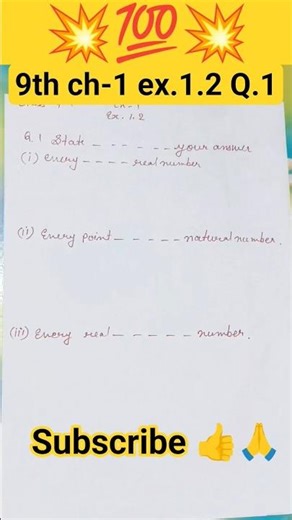 💥💯💥
9th ch-1 ex.1.2 Q.1
Ex. 1.2
Q.1 State - - - - - - your answer
(i) Every - - - - real number
(ii) Every point - - - - - natural number.
(iii) Every real - - - - - number.
Subscribe 👍🙏